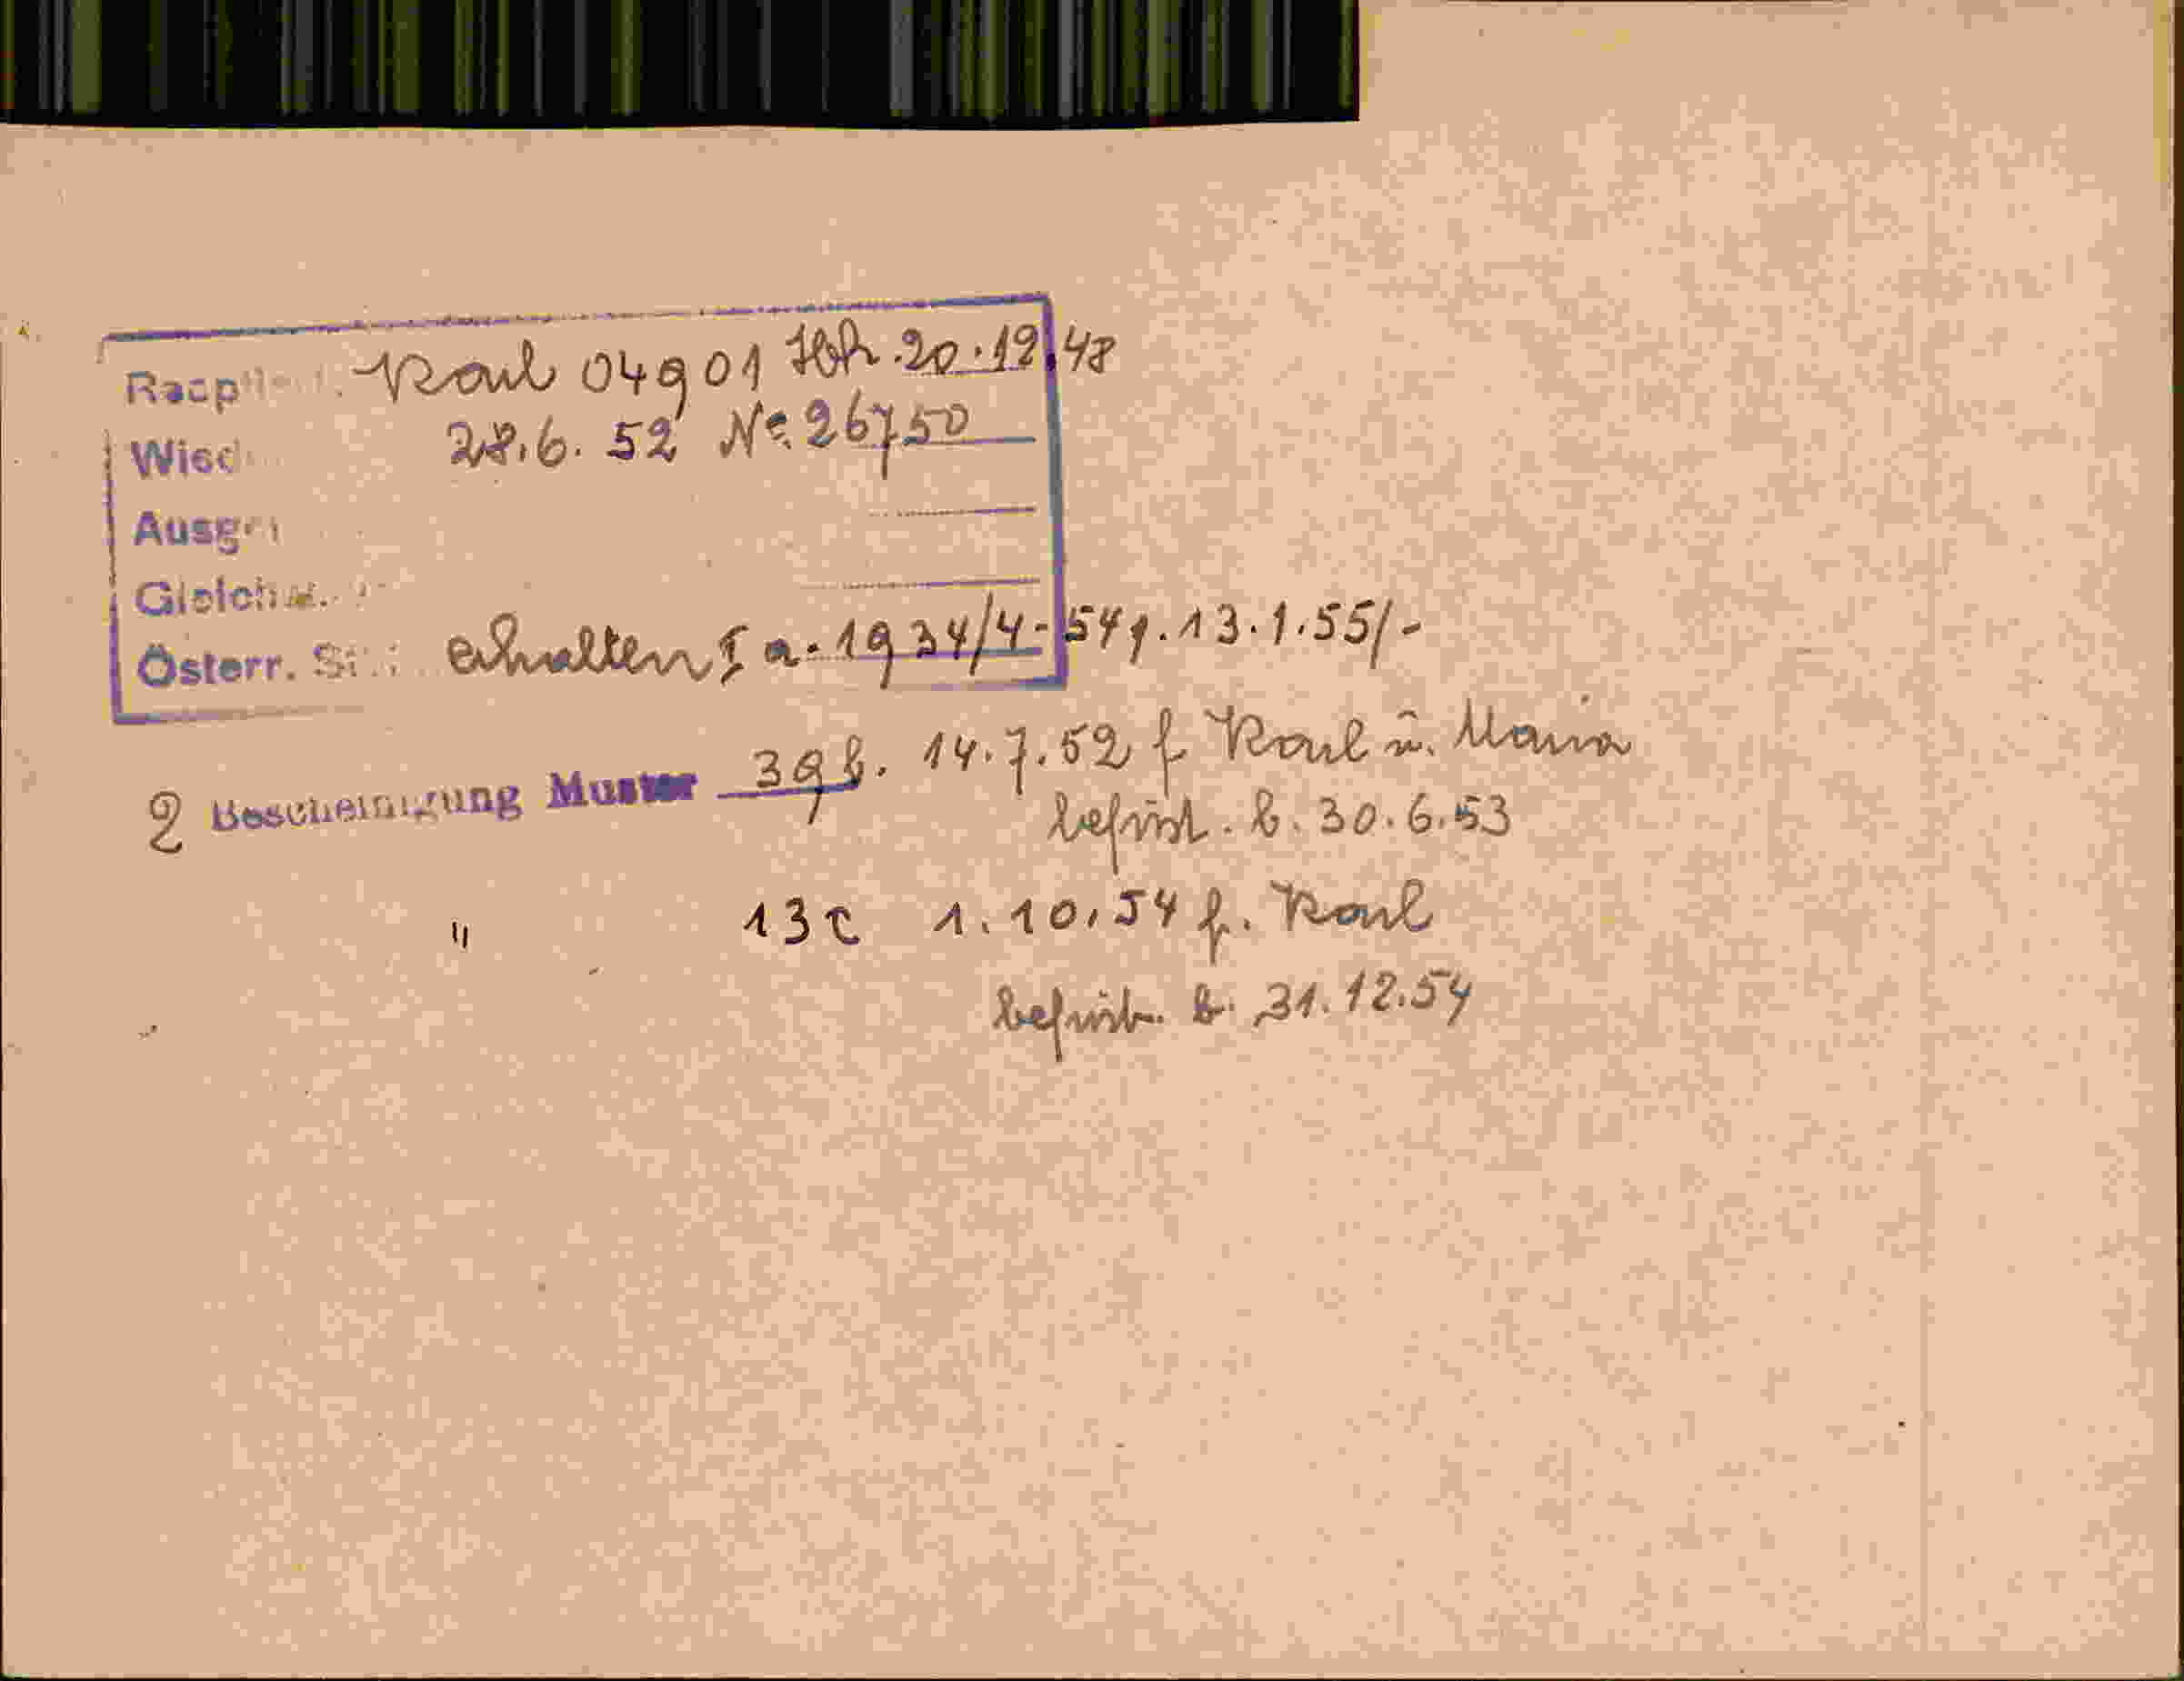 Karl 04901 20.12.48
28.6.52 No. 26750
Österr. erhalten a. 1934/4-54 13.1.55/-
2 Bescheinigung Muster 39b. 14.7.52 f Karl u. Maria
befrist. b. 30.6.53
" 13c 1.10.54 f. Karl
befrist. b. 31.12.54